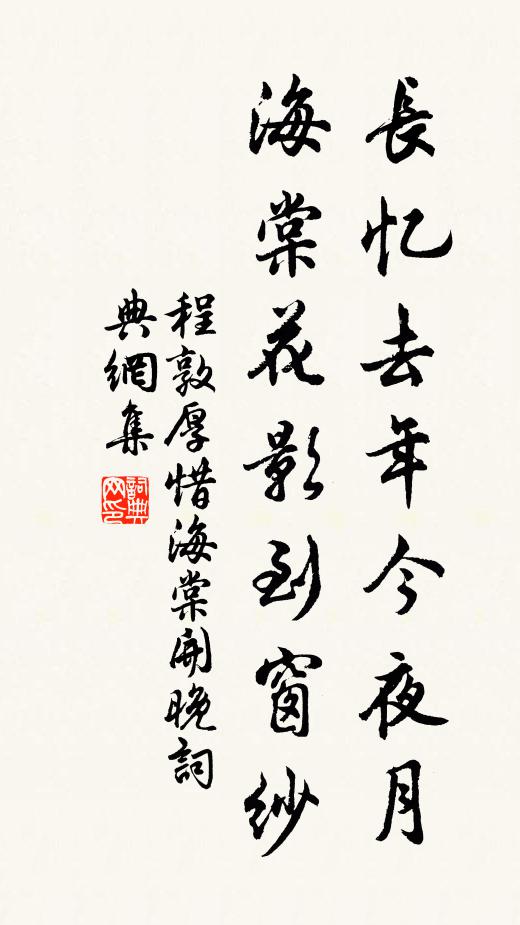 長忆去年今夜月
海棠花影到窗紗
程敦厚惜海棠開晚詞
典網集
詞典网印